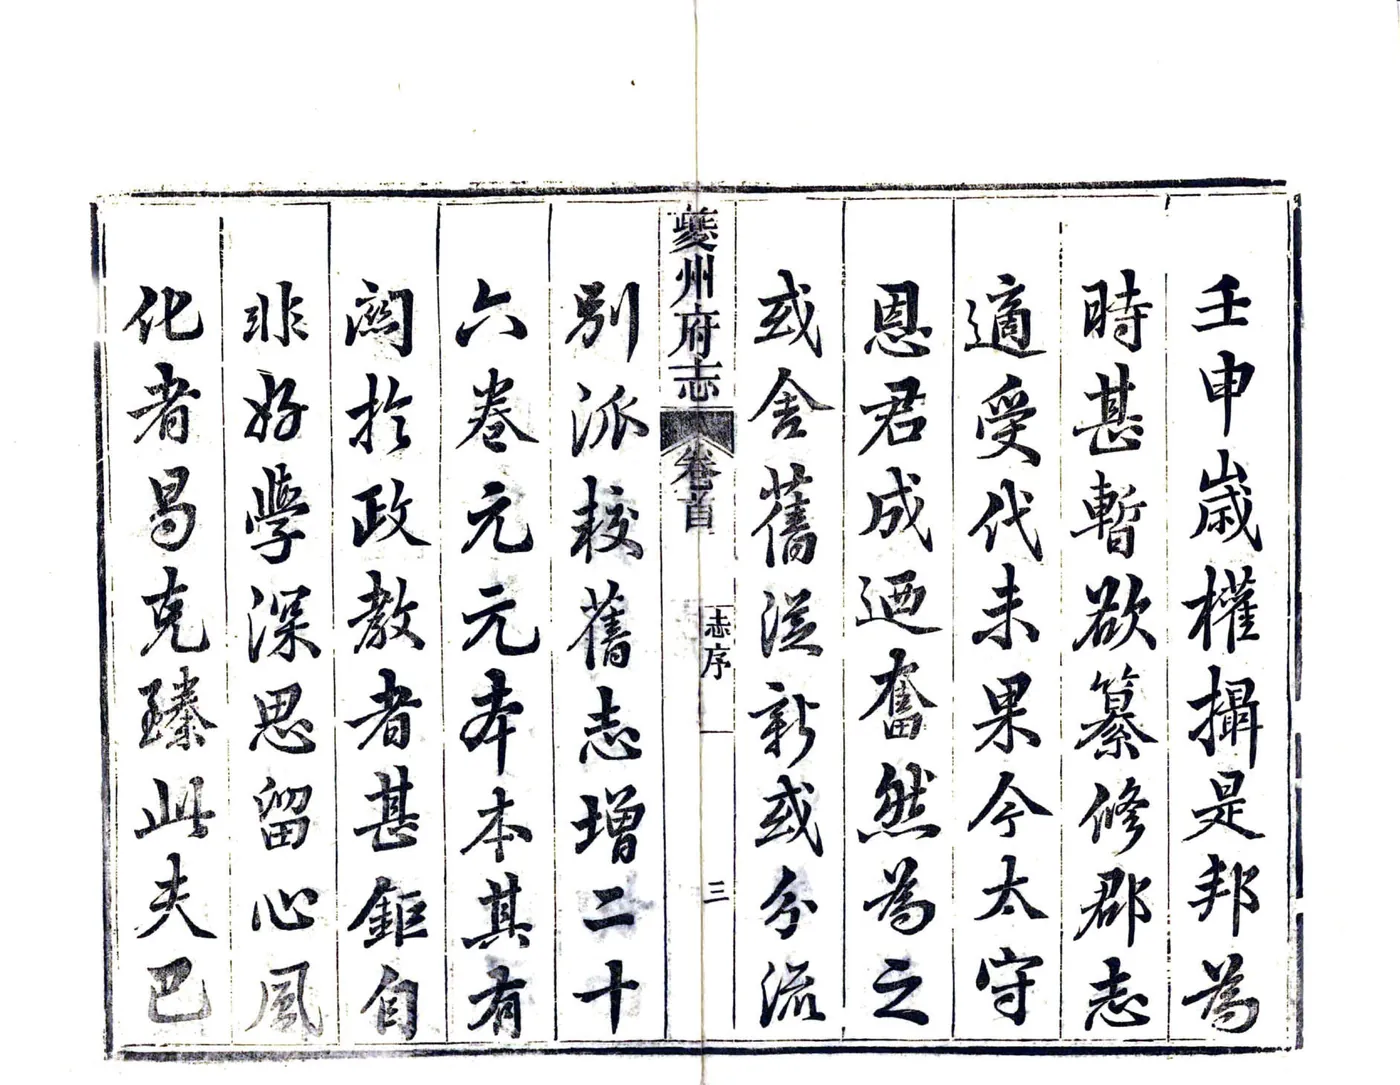 壬申歲權攝是邦為
時甚暫欲纂修郡志
適受代未果今太守
恩君成迺奮然為之
或舍舊從新或分流
夔州府志
卷首
志序
三
別派校舊志增二十
六卷元元本本其有
關於政教者甚鉅自
非好學深思留心風
化者曷克臻此夫巴